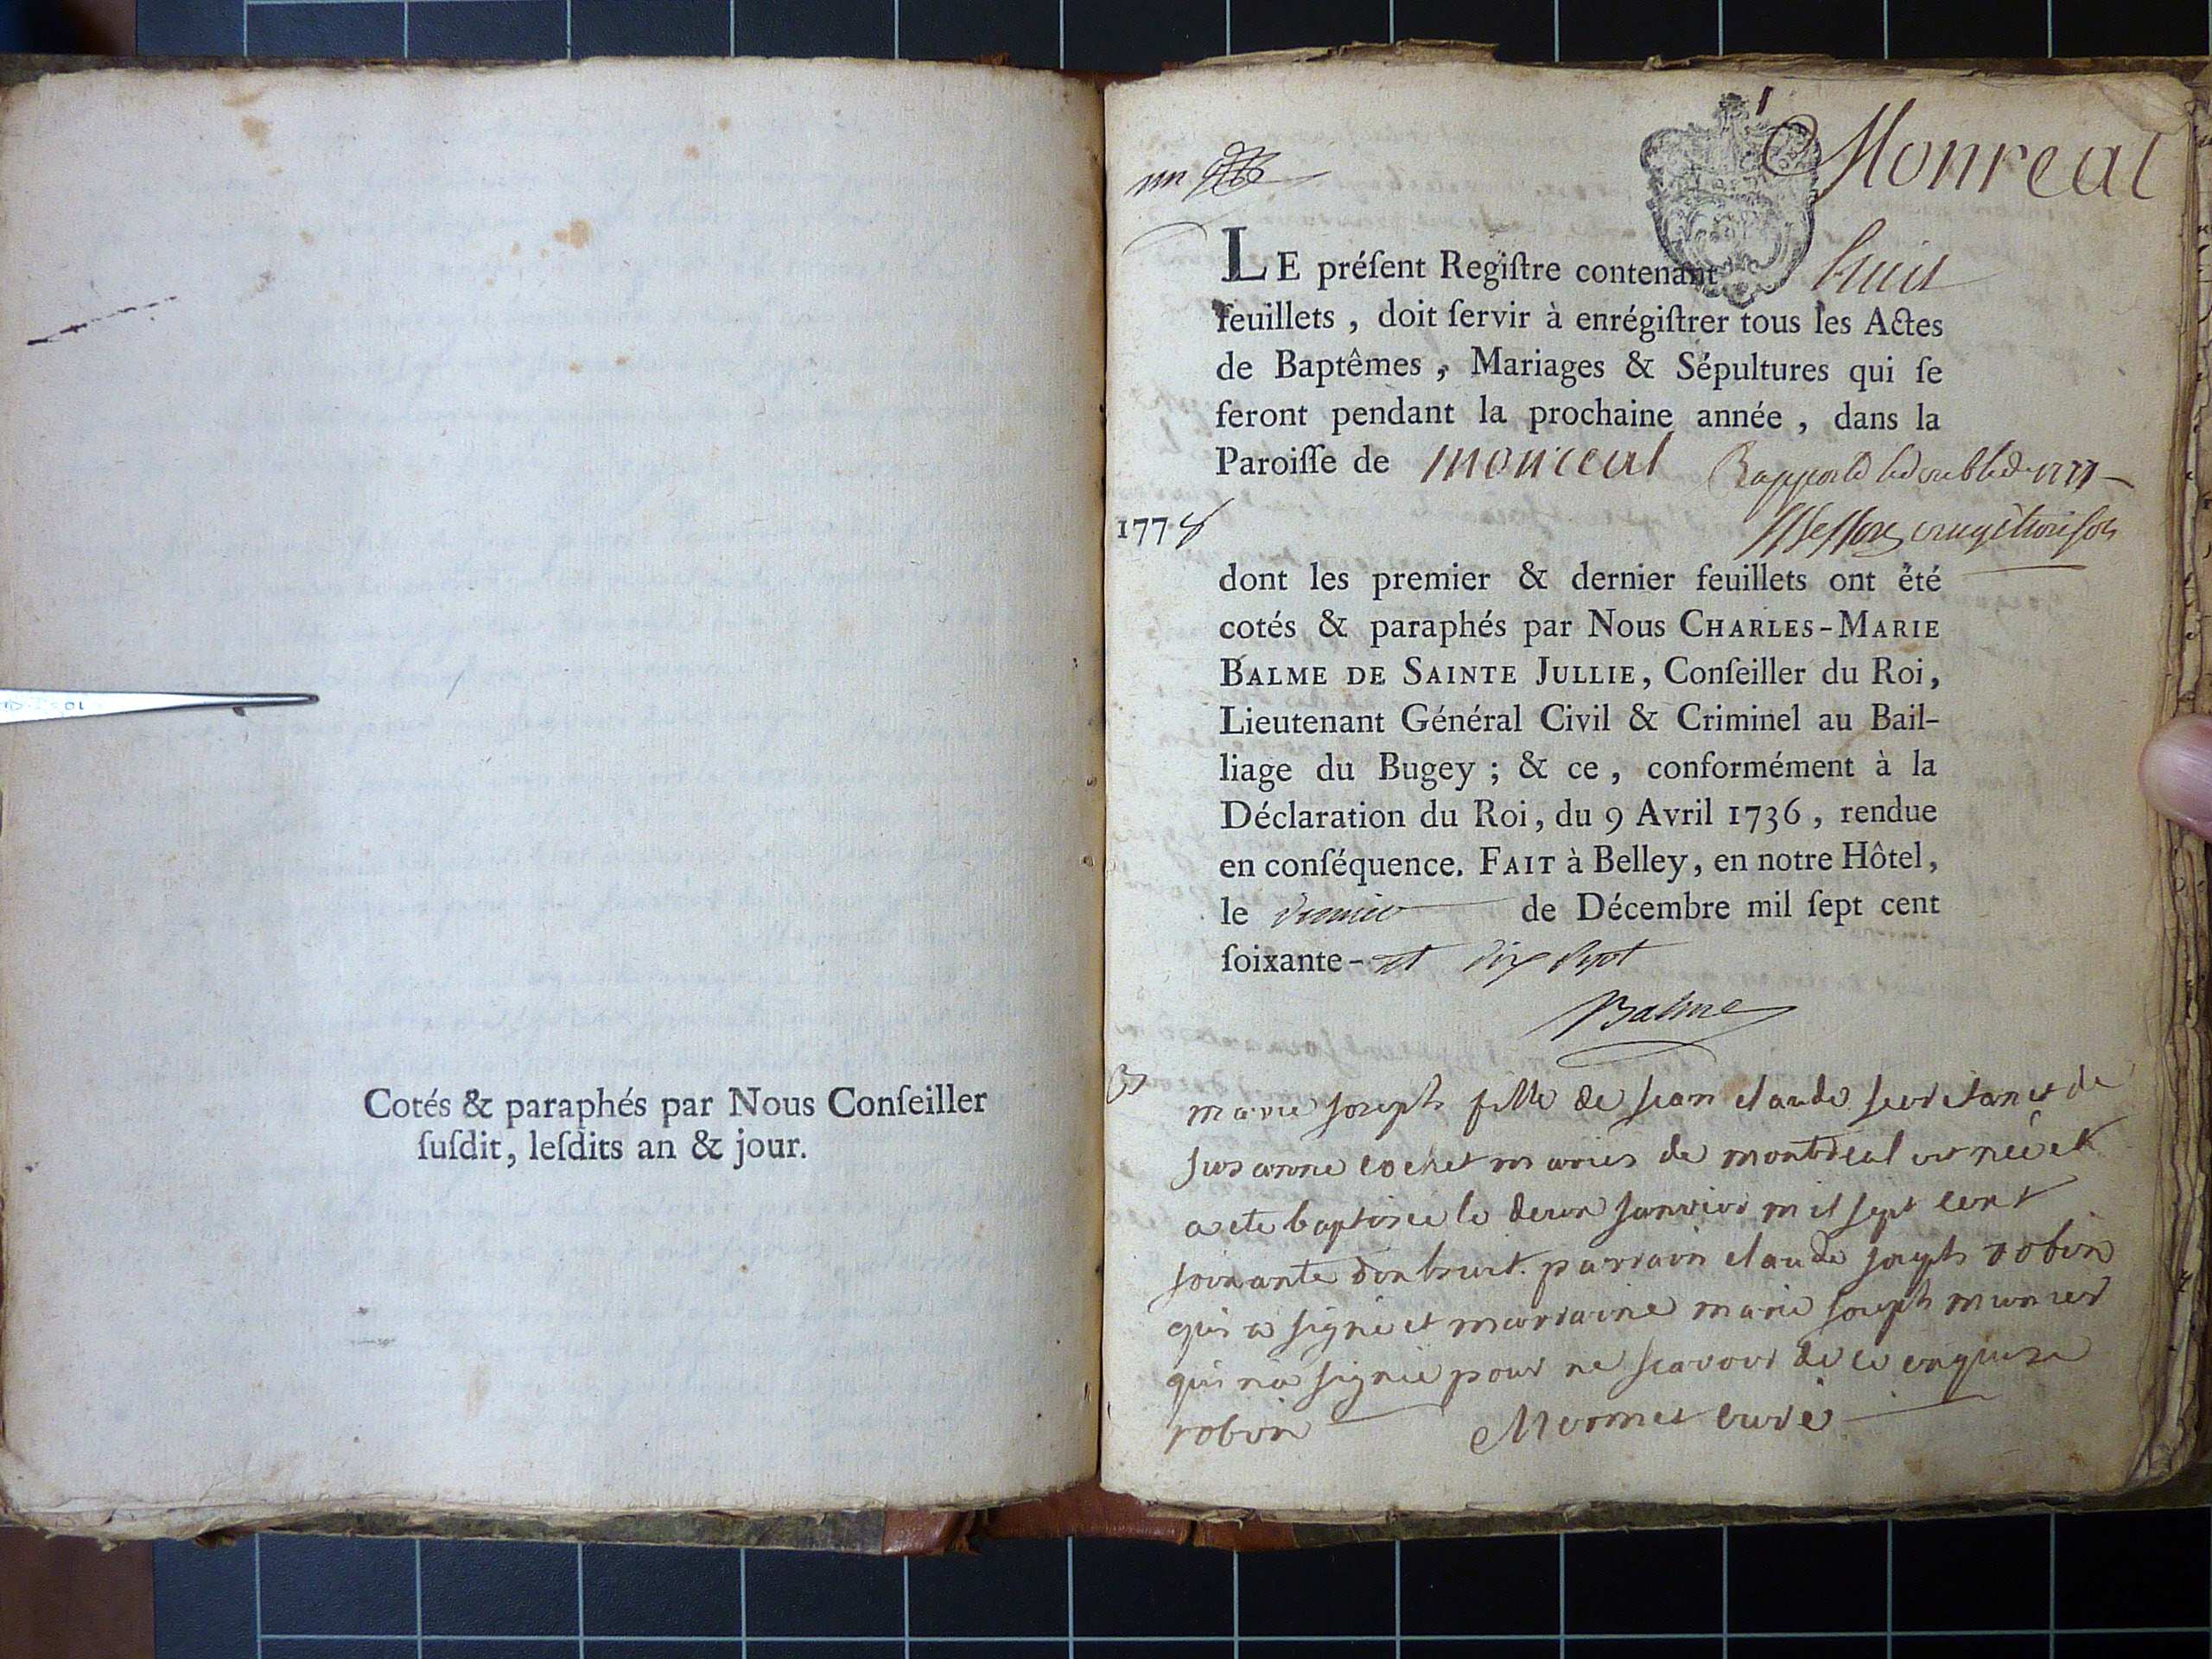 Cotés & paraphés par Nous Conſeiller
ſuſdit, leſdits an & jour.
Monreal
un
LE préſent Regiſtre contenant huit
feuillets, doit ſervir à enrégiſtrer tous les Actes
de Baptêmes, Mariages & Sépultures qui ſe
feront pendant la prochaine année, dans la
Paroiſſe de monreal
Rapporté le double de 1777
1778
dont les premier & dernier feuillets ont été
cotés & paraphés par Nous CHARLES-MARIE
BALME DE SAINTE JULLIE, Conſeiller du Roi,
Lieutenant Général Civil & Criminel au Bail-
liage du Bugey; & ce, conformément à la
Déclaration du Roi, du 9 Avril 1736, rendue
en conſéquence. FAIT à Belley, en notre Hôtel,
le premier de Décembre mil ſept cent
ſoixante-et dix sept
Balme
B
marie joseph fille de jean claude secretan et de
susanne cochet maries de montreal est née et
a ete baptisée le deux janvier mil sept cent
soixante dix huit. parrain claude joseph robin
qui a signé et marraine marie joseph munier
qui n'a signé pour ne scavoir de ce enquise
robin Mermet curé